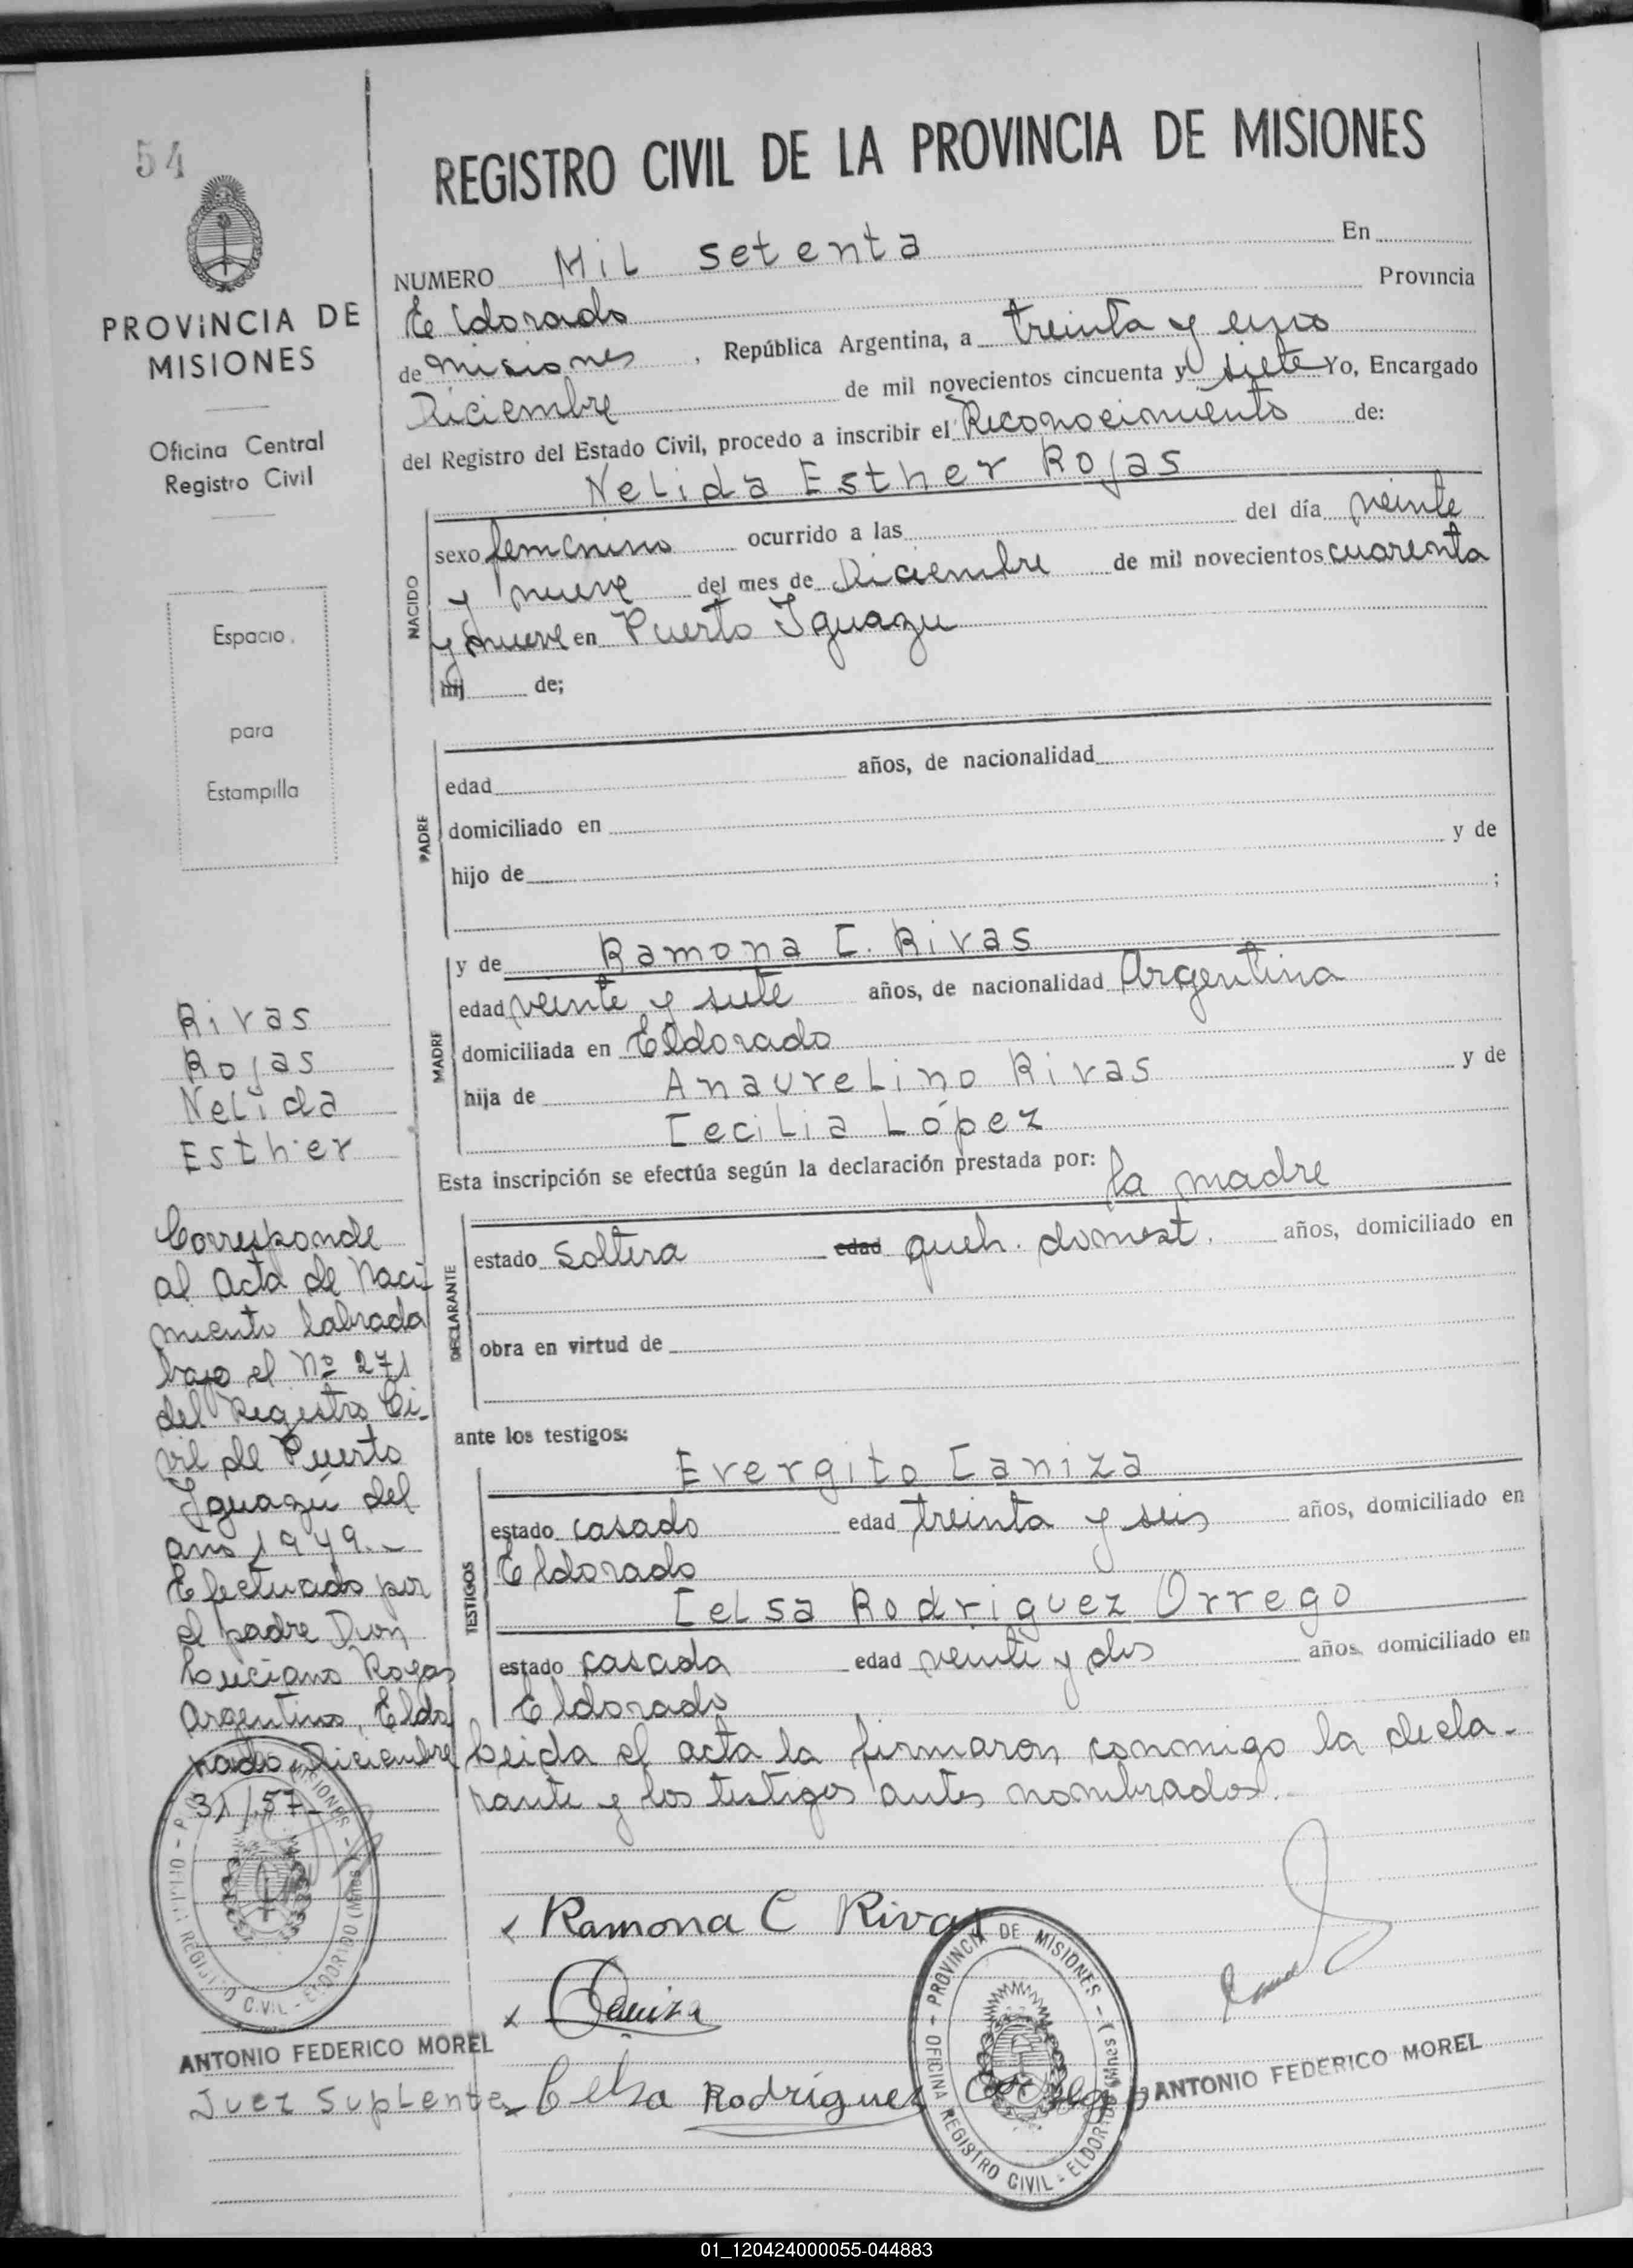 54
PROVINCIA DE
MISIONES
Oficina Central
Registro Civil
Espacio
para
Estampilla
Rivas
Rojas
Nelida
Esther
Corresponde
al acta de Naci-
miento labrada
bajo el Nº 271
del Registro Ci-
vil de Puerto
Iguazú del
año 1949.-
Efectuado por
el padre Don
Luciano Rojas
Argentino, Eldo
rado, Diciembre
31/57-
ANTONIO FEDERICO MOREL
Juez Suplente
REGISTRO CIVIL DE LA PROVINCIA DE MISIONES
NUMERO Mil setenta En
Eldorado Provincia
de Misiones, República Argentina, a treinta y uno
Diciembre de mil novecientos cincuenta y siete Yo, Encargado
del Registro del Estado Civil, procedo a inscribir el Reconocimiento de:
Nelida Esther Rojas
NACIDO
sexo femenino ocurrido a las del día veinte
y nueve del mes de Diciembre de mil novecientos cuarenta
y nueve en Puerto Iguazu
hij de;
PADRE
edad años, de nacionalidad
domiciliado en
hijo de y de
;
MADRE
y de Ramona C. Rivas
edad veinte y siete años, de nacionalidad Argentina
domiciliada en Eldorado
hija de Anaurelino Rivas y de
Cecilia López
Esta inscripción se efectúa según la declaración prestada por:
la madre
DECLARANTE
estado soltera edad queh. domest. años, domiciliado en
obra en virtud de
ante los testigos:
TESTIGOS
Evergito Caniza
estado casado edad treinta y seis años, domiciliado en
Eldorado
Celsa Rodriguez Orrego
estado casada edad veinte y dos años, domiciliado en
Eldorado
Leida el acta la firmaron conmigo la decla-
rante y los testigos antes nombrados.
Ramona C Rivas
Caniza
Celsa Rodríguez
PROVINCIA DE MISIONES - OFICINA REGISTRO CIVIL - ELDORADO (Mnes)
ANTONIO FEDERICO MOREL
01_120424000055-044883